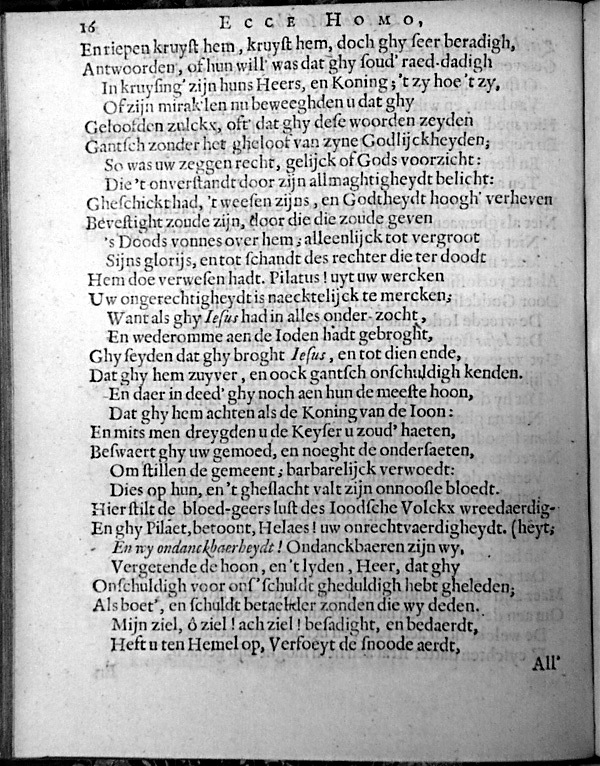 16 ECCE HOMO,
En riepen kruyst hem, kruyst hem, doch ghy seer beradigh,
Antwoorden, of hun will' was dat ghy soud' raed-dadigh
In kruysing' zijn huns Heers, en Koning; 't zy hoe 't zy,
Of zijn mirak'len nu beweeghden u dat ghy
Geloofden zulckx, oft' dat ghy dese woorden zeyden
Gantsch zonder het gheloof van zyne Godlijckheyden;
So was uw zeggen recht, gelijck of Gods voorzicht:
Die 't onverstandt door zijn allmaghtigheydt belicht:
Gheschickt had, 't weesen zijns, en Godtheydt hoogh' verheven
Bevestight zoude zijn, door die die zoude geven
's Doods vonnes over hem; alleenlijck tot vergroot
Sijns glorijs, en tot schandt des rechter die ter doodt
Hem doe verwesen hadt. Pilatus! uyt uw wercken
Uw ongerechtigheydt is naecktelijck te mercken;
Want als ghy Iesus had in alles onder-zocht,
En wederomme aen de Ioden hadt gebroght,
Ghy seyden dat ghy broght Iesus, en tot dien ende,
Dat ghy hem zuyver, en oock gantsch onschuldigh kenden.
En daer in deed' ghy noch aen hun de meeste hoon,
Dat ghy hem achten als de Koning van de Ioon:
En mits men dreygden u de Keyser u zoud' haeten,
Beswaert ghy uw gemoed, en noeght de ondersaeten,
Om stillen de gemeent; barbarelijck verwoedt:
Dies op hun, en 't gheslacht valt zijn onnoosle bloedt.
Hier stilt de bloed-geers lust des Ioodsche Volckx wreedaerdig-
En ghy Pilaet, betoont, Helaes! uw onrechtvaerdigheydt. (heyt;
En wy ondanckbaerheydt! Ondanckbaeren zijn wy,
Vergetende de hoon, en 't lyden, Heer, dat ghy
Onschuldigh voor ons' schuldt gheduldigh hebt gheleden;
Als boet', en schuldt betaelder zonden die wy deden.
Mijn ziel, ô ziel! ach ziel! besadight, en bedaerdt,
Heft u ten Hemel op, Versoeyt de snoode aerdt,
All'